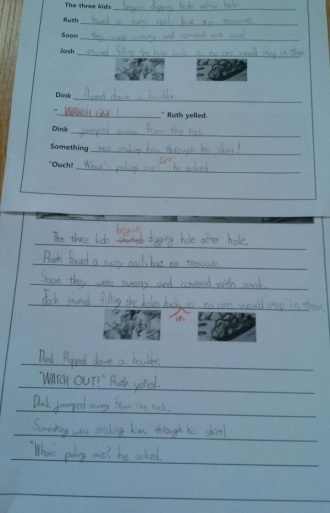 The three kids began digging hole after hole.
Ruth found a rusty nail, but no treasure.
Soon they were sweaty and covered with sand.
Josh started filling the hole back so no one would step in them
Dink flopped down a boulder.
"WATCH OUT!" Ruth yelled.
Dink jumped away from the rock.
Something was sticking him through his shirt!
"Ouch! What's poking me?" he asked.
The three kids started began digging hole after hole.
Ruth found a rusty nail, but no treasure.
Soon they were sweaty and covered with sand.
Josh started filling the holes back in so no one would step in them
Dink flopped down a boulder.
"WATCH OUT!" Ruth yelled.
Dink jumped away from the rock.
Something was sticking him through his shirt!
"What's poking me? he asked.